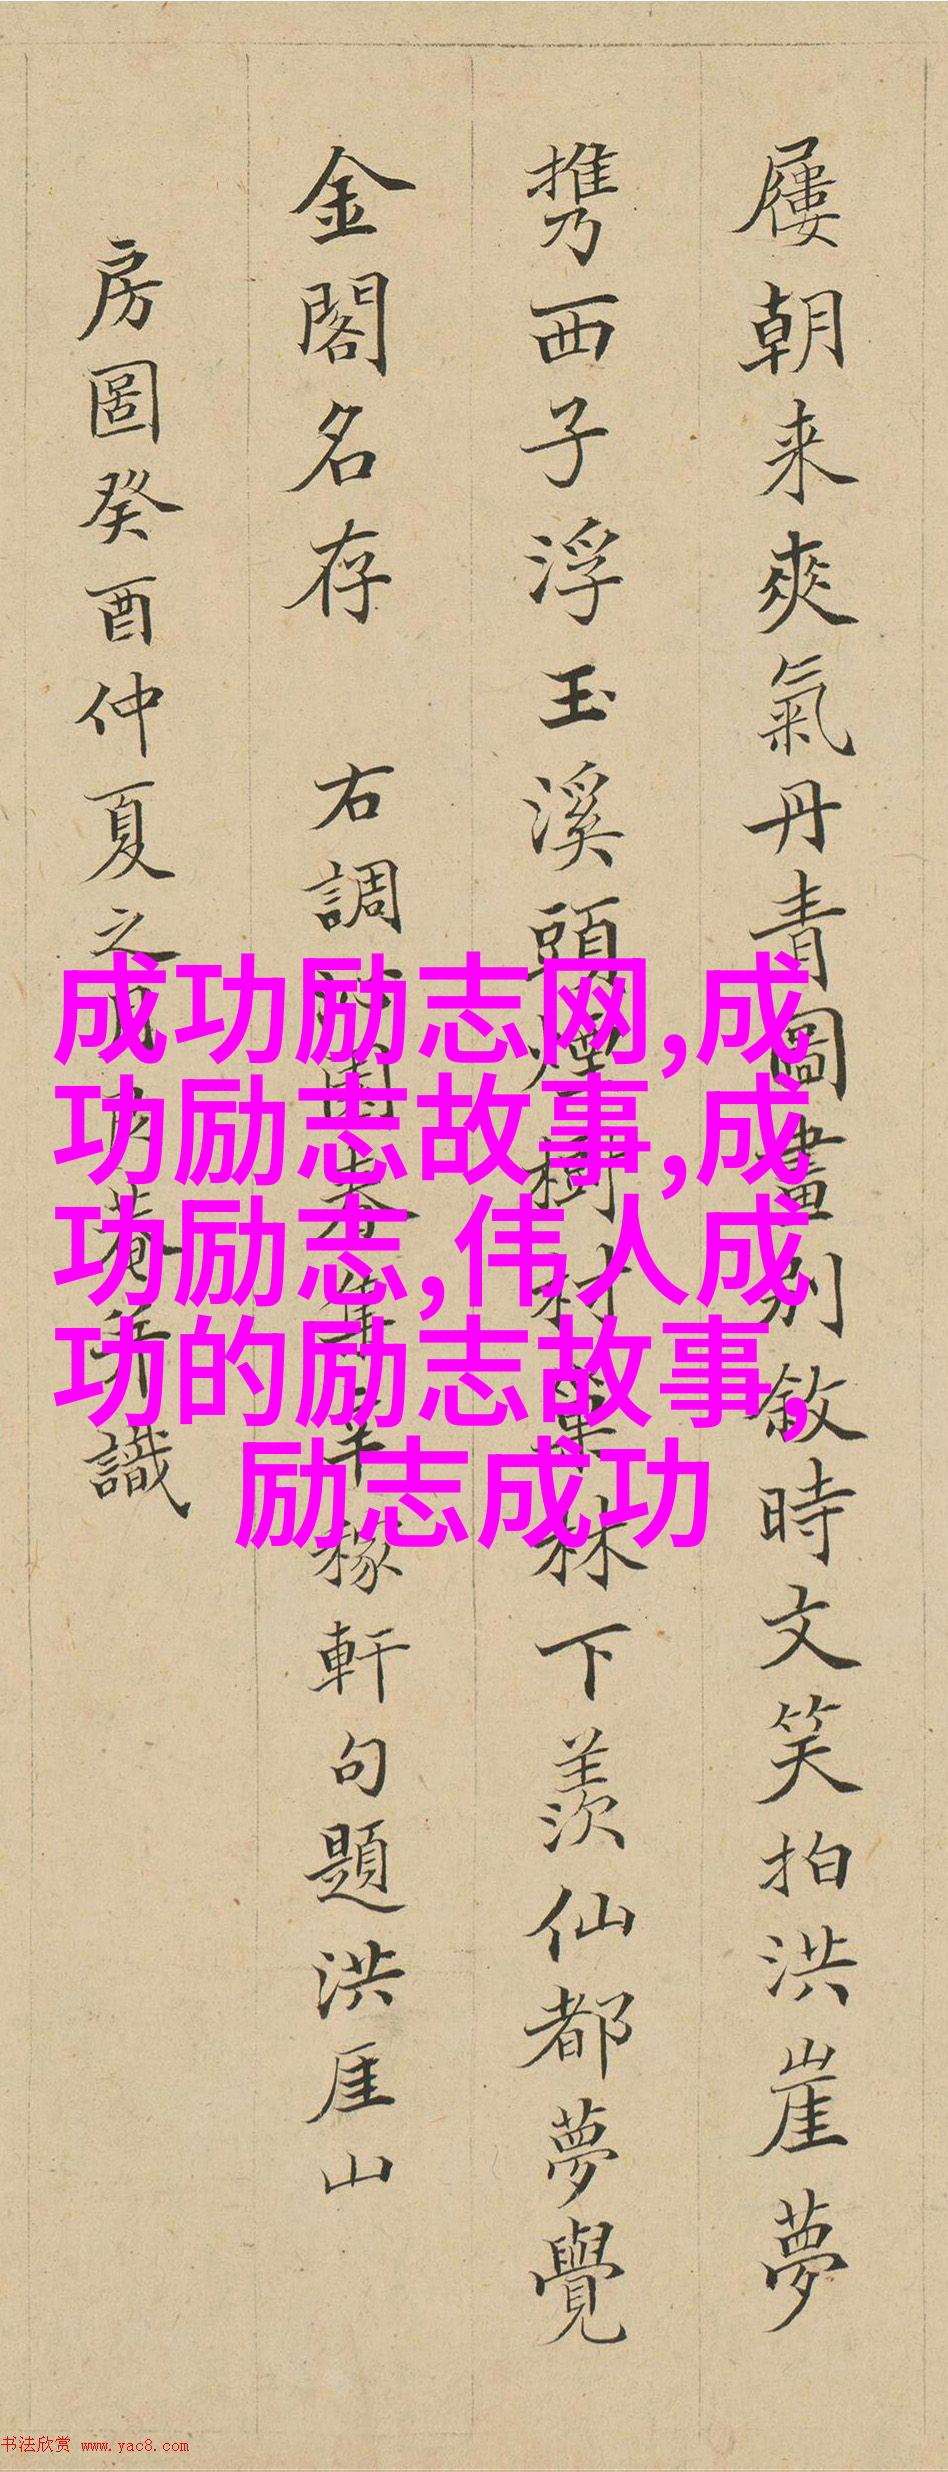 屨朝来爽氣丹青圖畫别敘時文笑拍洪崖夢
携西子浮玉溪頭煙樹村
林下羡仙都夢覺
金閣名存 右調沁園春集辛稼軒句題洪厓山
房圖癸酉仲夏之月
菴并識
成功励志网,成
功励志故事,成
功励志,伟人成
功的励志故事,
励志成功
书法欣赏 www.yac8.com